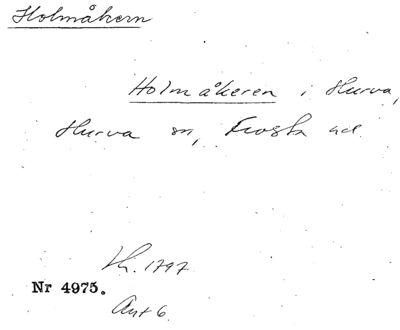 Holmåkern
Holmåkeren i Hurva,
Hurva sn, Frosta hd
1797
Nr 4975.
Akt 6.